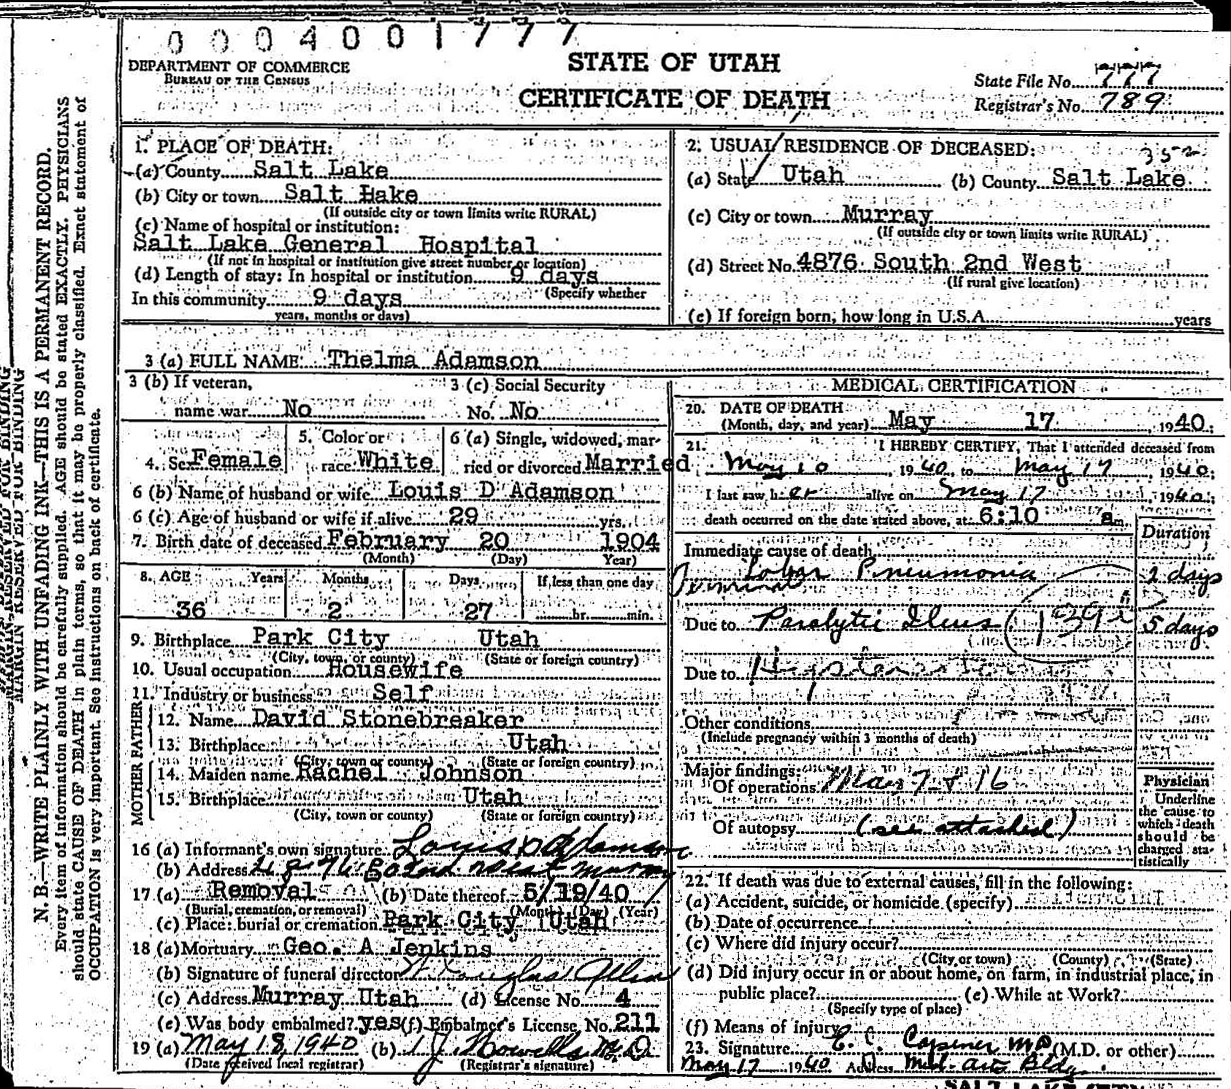 0004001777
DEPARTMENT OF COMMERCE
BUREAU OF THE CENSUS
STATE OF UTAH
CERTIFICATE OF DEATH
State File No. 777
Registrar's No. 789
N. B.—WRITE PLAINLY WITH UNFADING INK—THIS IS A PERMANENT RECORD.
Every item of information should be carefully supplied. AGE should be stated EXACTLY. PHYSICIANS
should state CAUSE OF DEATH in plain terms, so that it may be properly classified. Exact statement of
OCCUPATION is very important. See instructions on back of certificate.
MARGIN RESERVED FOR BINDING
1. PLACE OF DEATH:
(a) County Salt Lake
(b) City or town Salt Hake
(If outside city or town limits write RURAL)
(c) Name of hospital or institution:
Salt Lake General Hospital
(If not in hospital or institution give street number or location)
(d) Length of stay: In hospital or institution 9 days
(Specify whether
In this community 9 days
years, months or days)
2. USUAL RESIDENCE OF DECEASED: 352
(a) State Utah (b) County Salt Lake
(c) City or town Murray
(If outside city or town limits write RURAL)
(d) Street No. 4876 South 2nd West
(If rural give location)
(e) If foreign born, how long in U.S.A. years
3 (a) FULL NAME Thelma Adamson
3 (b) If veteran, name war No
3 (c) Social Security No. No
4. Sex Female
5. Color or race White
6 (a) Single, widowed, married or divorced Married
6 (b) Name of husband or wife Louis D Adamson
6 (c) Age of husband or wife if alive 29 yrs.
7. Birth date of deceased February 20 1904
(Month) (Day) Year)
8. AGE Years Months Days If less than one day
36 2 27 hr. min.
9. Birthplace Park City Utah
(City, town, or county) (State or foreign country)
10. Usual occupation Housewife
11. Industry or business Self
FATHER
12. Name David Stonebreaker
13. Birthplace Utah
(City, town or county) (State or foreign country)
MOTHER
14. Maiden name Rachel Johnson
15. Birthplace Utah
(City, town or county) (State or foreign country)
16 (a) Informant's own signature Louis D Adamson
(b) Address 4876 So 2nd West Murray
17 (a) Removal (b) Date thereof 5/19/40
(Burial, cremation, or removal) (Month) (Day) (Year)
(c) Place: burial or cremation Park City Utah
18 (a) Mortuary Geo. A Jenkins
(b) Signature of funeral director Douglas
(c) Address Murray Utah (d) License No. 4
(e) Was body embalmed? yes (f) Embalmer's License No. 211
19 (a) May 18, 1940 (b) Howells M.D.
(Date received local registrar) (Registrar's signature)
MEDICAL CERTIFICATION
20. DATE OF DEATH
(Month, day, and year) May 17, 1940;
21. I HEREBY CERTIFY, That I attended deceased from
May 10 1940, to May 17 1940;
I last saw her alive on May 17 1940;
death occurred on the date stated above, at 6:10 a m.
Duration
Immediate cause of death
Terminal Lobar Pneumonia 2 days
Due to Paralytic Ileus 5 days
139
Due to
Other conditions
(Include pregnancy within 3 months of death)
Major findings:
Of operations May 7 & 16
Of autopsy (see attached)
Physician
Underline the cause to which death should be charged statistically
22. If death was due to external causes, fill in the following:
(a) Accident, suicide, or homicide (specify)
(b) Date of occurrence
(c) Where did injury occur?
(City or town) (County) (State)
(d) Did injury occur in or about home, on farm, in industrial place, in
public place? (e) While at Work?
(Specify type of place)
(f) Means of injury
23. Signature E. C. MD (M.D. or other)
May 17 1940 Address Med. arts Bldg.